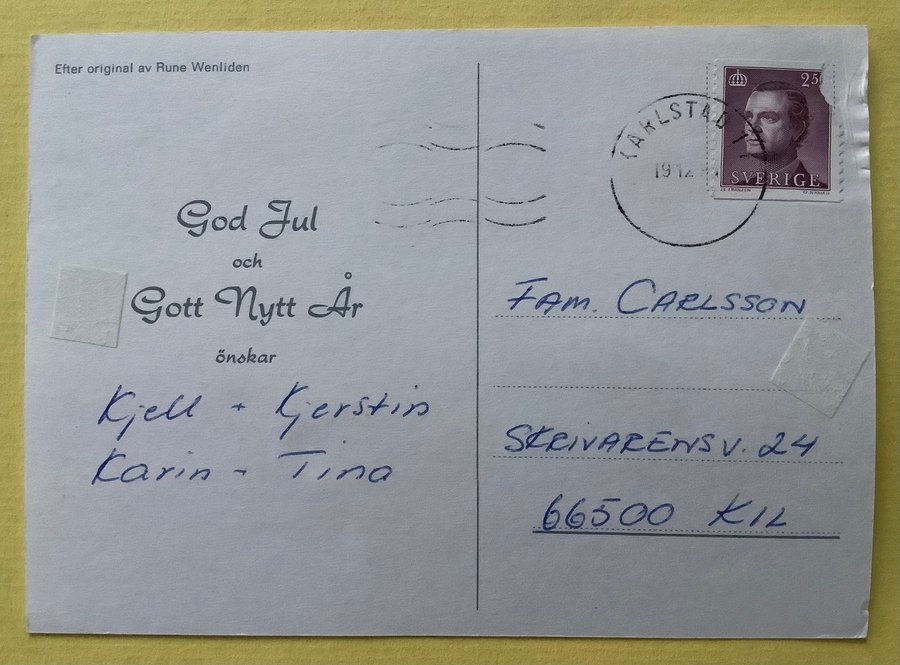 Efter original av Rune Wenliden
God Jul
och
Gott Nytt År
önskar
Kjell + Kjerstin
Karin - Tina
KARLSTAD 1
19 12
SVERIGE
FAM. CARLSSON
SKRIVARENSV. 24
66500 KIL